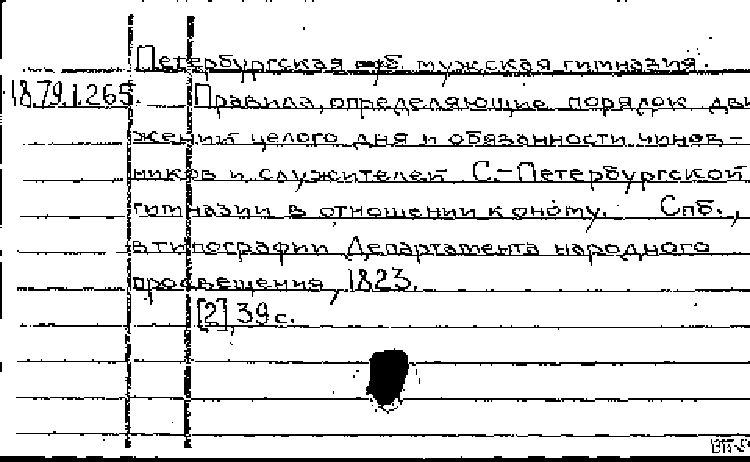 Петербургская мужская гимназия.
18.79.1.265.
Правила, определяющие порядок дви
жений целого дня и обязанности чинов-
ников и служителей С.-Петербургской
гимназии в отношении к оному. Спб.,
в типографии Департамента народного
просвещения, 1823.
[2], 39 с.